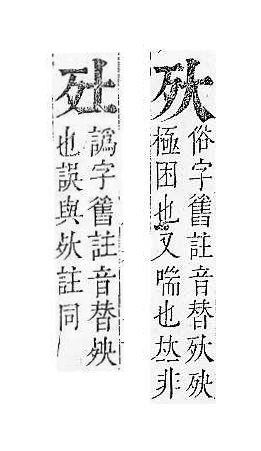 俗字舊註音替殃
極困也又喘也𠀤非
譌字舊註音替殃
也誤與註同